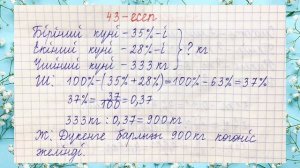 43-есеп
Бірінші күні - 35%-і
Екінші күні - 28%-і } ? кг
Үшінші күні - 333 кг
Ш. 100% - (35% + 28%) = 100% - 63% = 37%
37% = 37/100 = 0,37
333 кг : 0,37 = 900 кг
Ж. Дүкенге барлығы 900 кг көкөніс